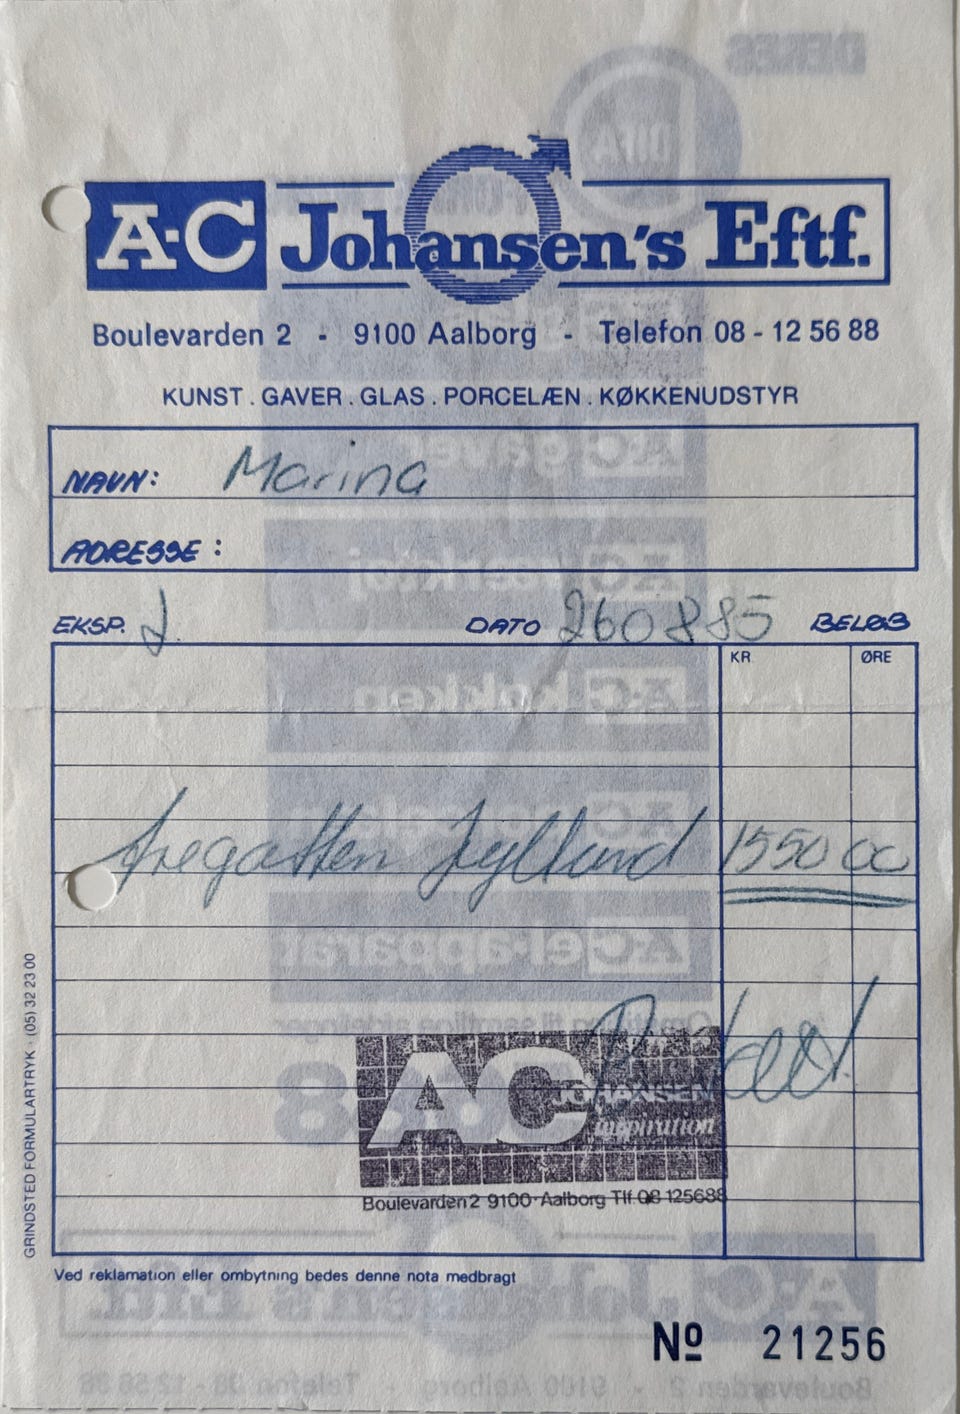 A·C Johansen's Eftf.
Boulevarden 2 - 9100 Aalborg - Telefon 08 - 12 56 88
KUNST . GAVER . GLAS . PORCELÆN . KØKKENUDSTYR
NAVN: Marina
ADRESSE :
EKSP. 2 DATO 260885 BELØB
KR ØRE
fregatten Jylland 1550 00
AC JOHANSEN
inspiration
Boulevarden 2 9100 Aalborg Tlf. 08 125688
GRINDSTED FORMULARTRYK - (05) 32 23 00
Ved reklamation eller ombytning bedes denne nota medbragt
Nº 21256